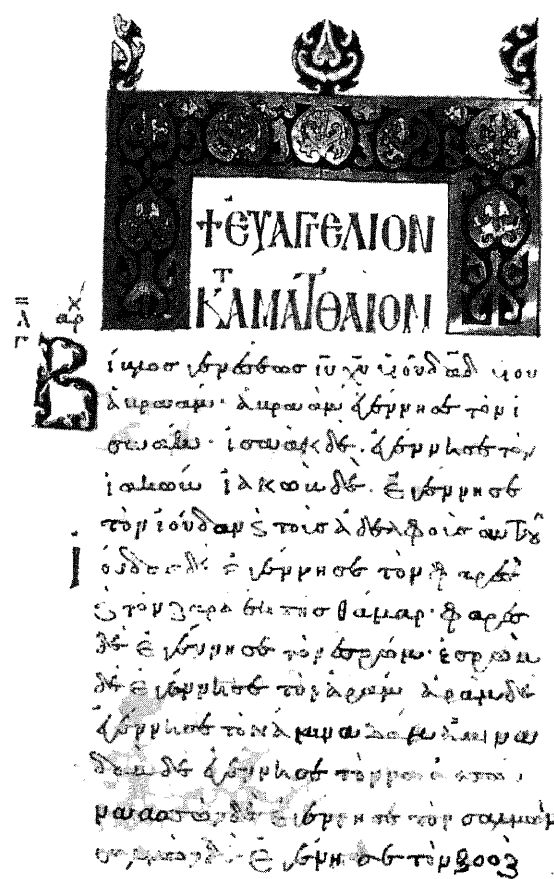 + ΕΥΑΓΓΕΛΙΟΝ
ΚΑΤΑ ΜΑΤΘΑΙΟΝ
αρχ
Βίβλος γενέσεως ιυ χυ υιου δαδ υιου
ἀβρααμ· ἀβρααμ ἐγέννησε τὸν ι
σαακ· ισαακ δὲ ἐγέννησε τὸν
ιακωβ ιακωβ δὲ ἐγέννησε
τὸν ιούδαν ϗ τοὺς ἀδελφοὺς αὐτοῦ
ιούδας δὲ ἐγέννησε τὸν φαρὲς
ϗ τὸν ζαρα ἐκ τῆς θάμαρ· φαρὲς
δὲ ἐγέννησε τὸν ἐσρώμ· ἐσρὼμ
δὲ ἐγέννησε τὸν ἀράμ ἀρὰμ δὲ
ἐγέννησε τὸν ἀμιναδάμ ἀμινα
δαμ δὲ ἐγέννησε τὸν ναασσων
ναασσὼν δὲ ἐγέννησε τὸν σαλμών
σαλμὼν δὲ ἐγέννησε τὸν βοοζ